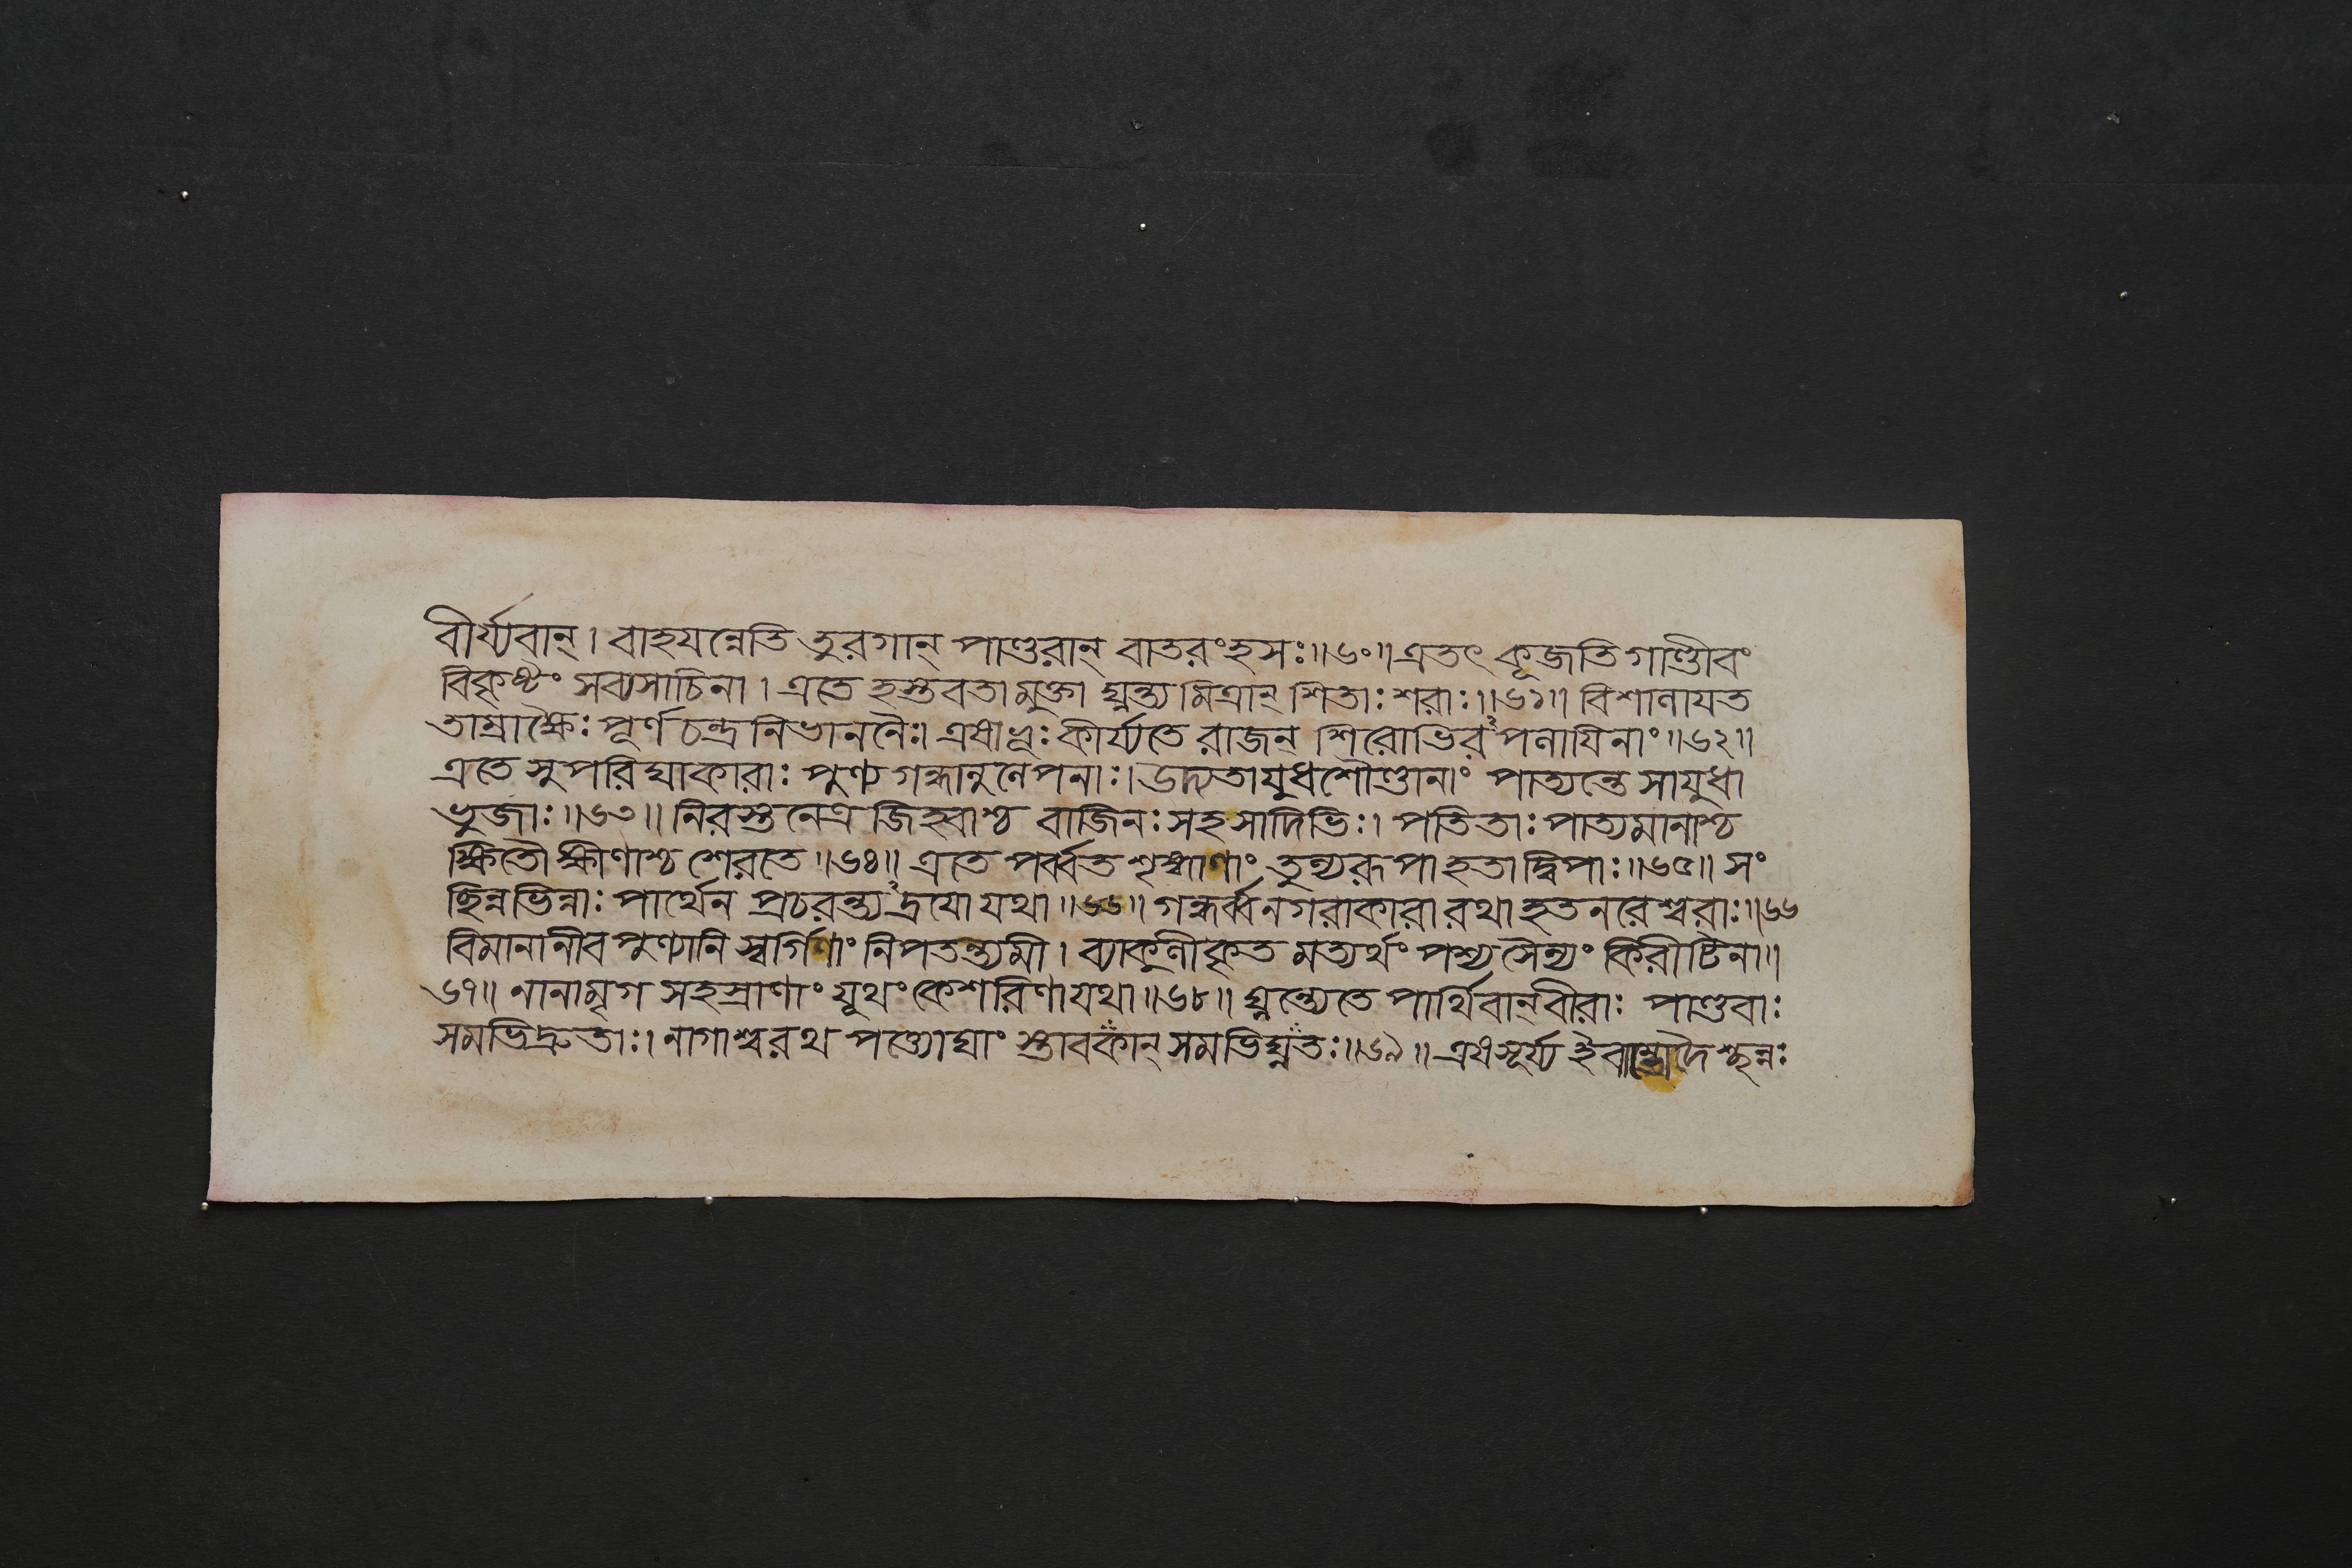 বীর্য্যবান্। বাহযন্নেতি তুরগান্ পাণ্ডুরান্ বাতরংহসঃ॥৬০॥ এতৎ কূজতি গাণ্ডীবং
বিকৃষ্টং সব্যসাচিনা। এতে হস্তবতা মুক্তা ঘ্নন্ত্যমিত্রান্ শিতাঃ শরাঃ॥৬১॥ বিশালাযত
তাম্রাক্ষৈঃ পূর্ণচন্দ্রনিভাননৈঃ। এষা ভূঃ কীর্য্যতে রাজন্ শিরোভিরপলাযিনাং॥৬২॥
এতে সুপরিঘাকারাঃ পুণ্যগন্ধানুলেপনাঃ। উদ্যতাযুধশৌণ্ডানাং পাত্যন্তে সাযুধা
ভুজাঃ॥৬৩॥ নিরস্তনেত্রজিহ্বাশ্চ বাজিনঃ সহ সাদিভিঃ। পতিতাঃ পাত্যমানাশ্চ
ক্ষিতৌ ক্ষীণাশ্চ শেরতে॥৬৪॥ এতে পর্ব্বতশৃঙ্গাণাং তুল্যরূপা হতা দ্বিপাঃ॥৬৫॥ সং
ছিন্নভিন্নাঃ পার্থেন প্রচরন্ত্যদ্রযো যথা॥৬৬॥ গন্ধর্ব্বনগরাকারা রথা হতনরেশ্বরাঃ॥৬৬
বিমানানীব পুণ্যানি স্বর্গিণাং নিপতন্ত্যমী। ব্যাকুলীকৃতমত্যর্থং পশ্য সৈন্যং কিরীটিনা॥
৬৭॥ নানামৃগসহস্রাণাং যূথং কেশরিণা যথা॥৬৮॥ ঘ্নন্ত্যেতে পার্থিবান্ বীরাঃ পাণ্ডবাঃ
সমভিদ্রুতাঃ। নাগাশ্বরথপত্ত্যোঘাং স্তাবকান্ সমভিঘ্নতঃ॥৬৯॥ এষ সূর্য্য ইবাম্ভোদৈশ্ছন্নঃ